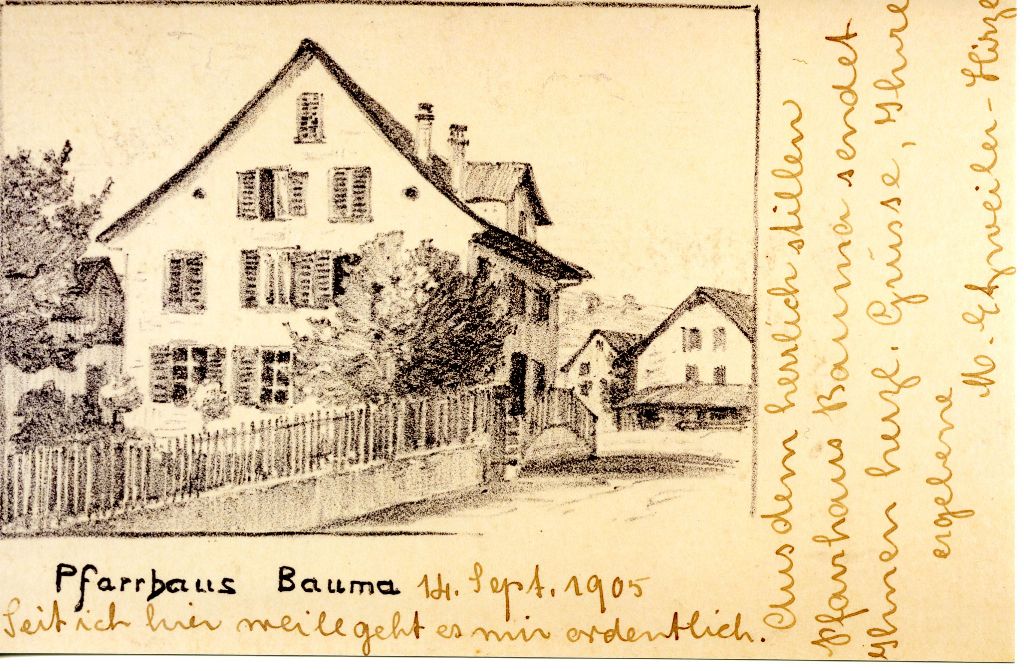 Pfarrhaus Bauma 14. Sept. 1905
Seit ich hier weile geht es mir ordentlich.
Aus dem herrlich stillen
Pfarrhaus Bauma sendet
Ihnen herzl. Grüsse, Ihre
ergebene
M.